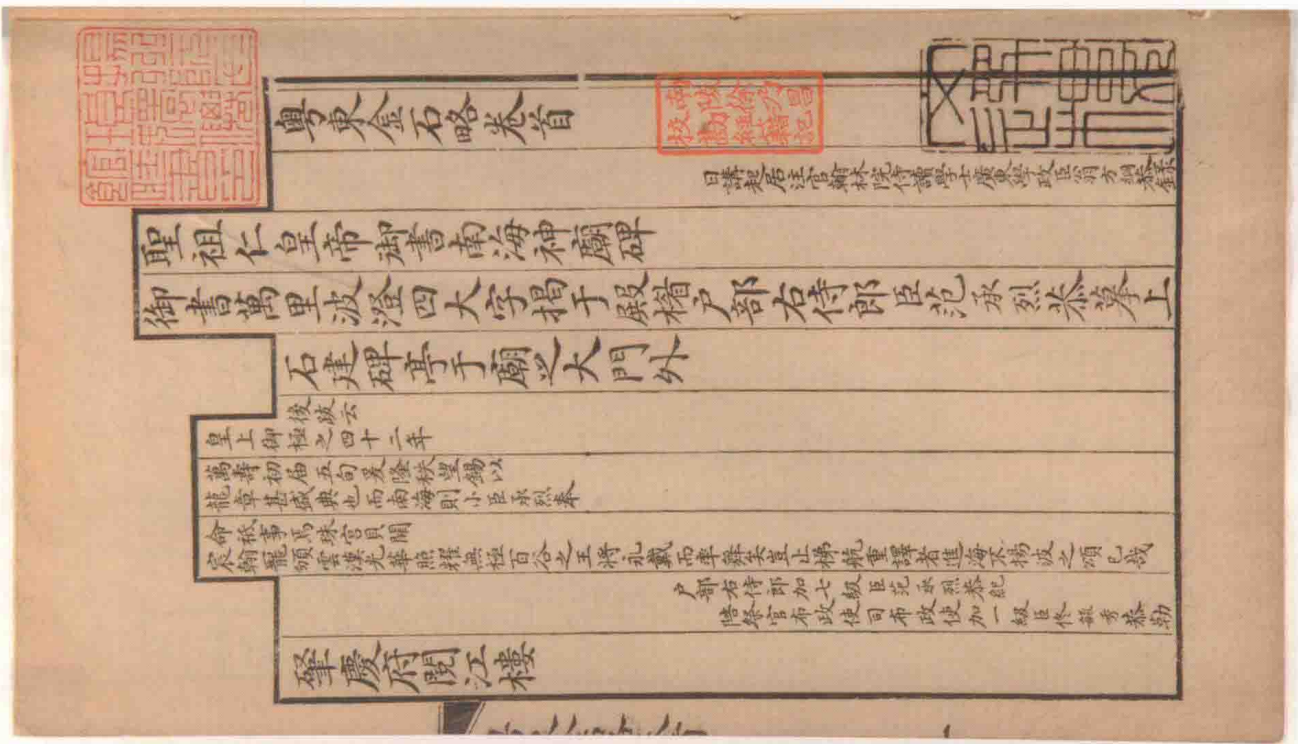 粤東金石略卷首
日講起居注官翰林院侍讀學士廣東學政臣翁方綱恭錄
聖祖仁皇帝御書南海神廟碑
御書萬里波澄四大字揭于殿楹戶部右侍郎臣范承烈恭摹上
石建碑亭于廟之大門外
後跋云
皇上御極之四十二年
萬壽初屆五旬爰隆秩望錫以
龍章甚盛典也而南海則小臣承烈奉
命祗事焉珠宮貝闕
宸翰寵頒雲漢光華照耀無極百谷之王將永戴而率舞矣豈止梯航重譯者進海不揚波之頌已哉
戶部右侍郎加七級臣范承烈恭紀
陪祭官布政使司布政使加一級臣佟毓秀恭勒
肇慶府閱江樓
南陵徐乃昌校勘經籍記